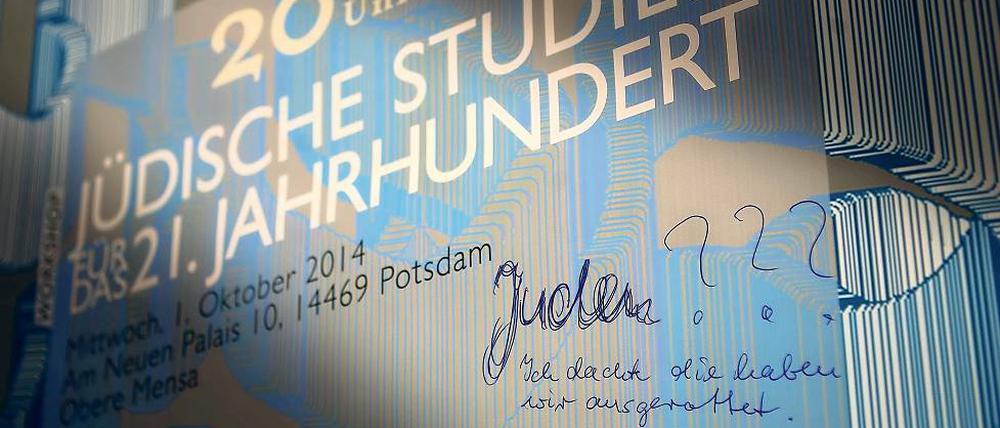 20 Uhr
JÜDISCHE STUDIEN
FÜR
DAS 21. JAHRHUNDERT
WORKSHOP
Mittwoch, 1. Oktober 2014
Am Neuen Palais 10, 14469 Potsdam
Obere Mensa
Juden ???
Ich dachte die haben
wir ausgerottet.